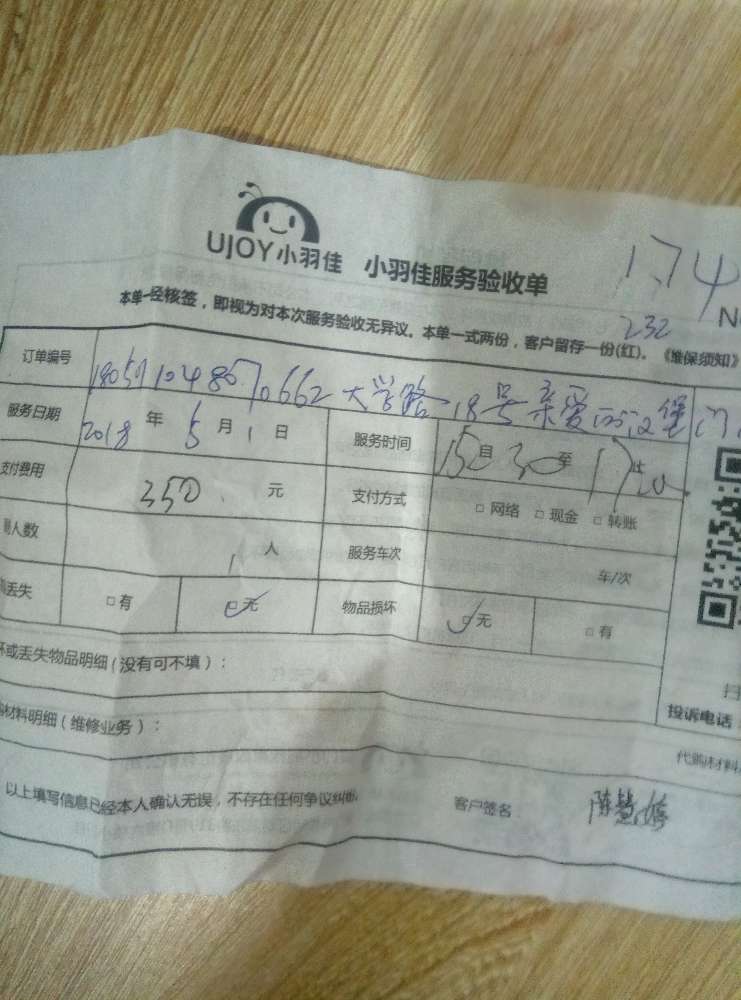 UJOY小羽佳 小羽佳服务验收单
174
232
本单一经核签，即视为对本次服务验收无异议。本单一式两份，客户留存一份(红)。《维保须知》
订单编号 大学路18号亲爱的汉堡
服务日期 2018 年 5 月 1 日 服务时间 15 自 30 至 17 止 20
支付费用 350 元 支付方式 □ 网络 □ 现金 □ 转账
人数 1 人 服务车次 车/次
丢失 □有 □无 物品损坏 □无 □有
坏或丢失物品明细（没有可不填）：
投诉电话
材料明细（维修业务）：
代购材料
以上填写信息已经本人确认无误，不存在任何争议纠 客户签名 陈慧婷